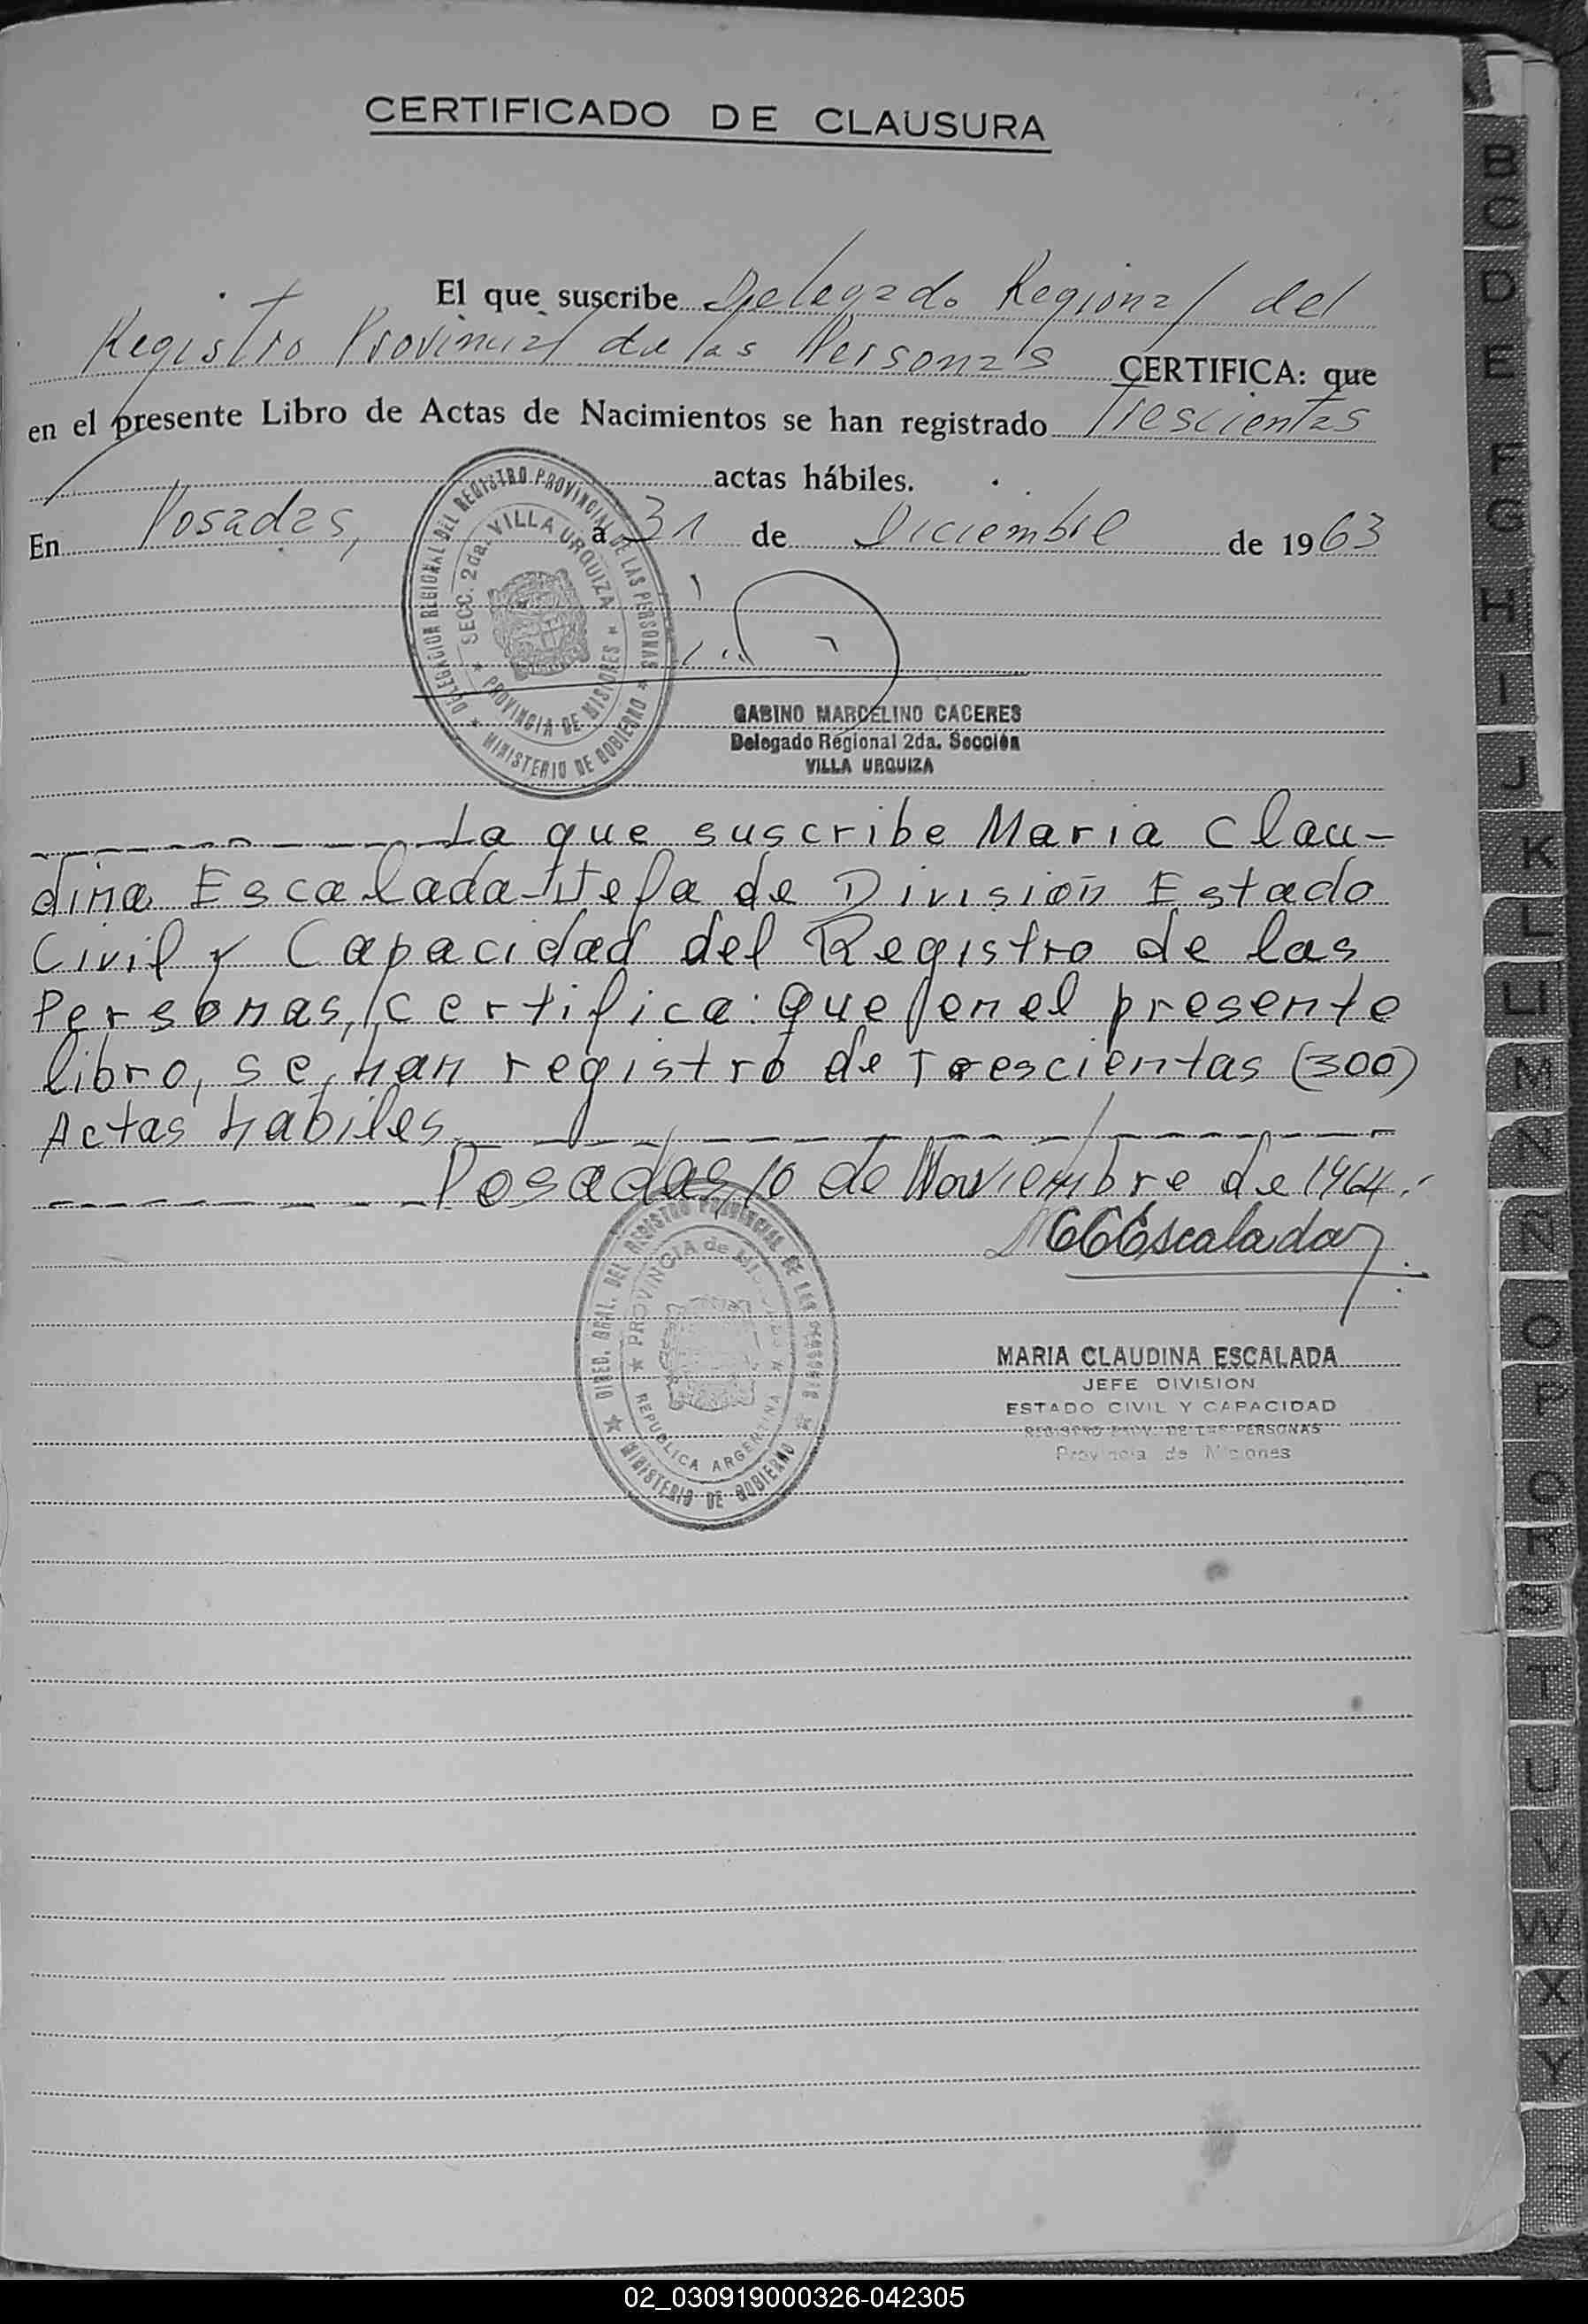 CERTIFICADO DE CLAUSURA
El que suscribe Delegado Regional del
Registro Provincial de las Personas CERTIFICA: que
en el presente Libro de Actas de Nacimientos se han registrado Trescientas
actas hábiles.
En Posadas, a 31 de Diciembre de 1963
DELEGACION REGIONAL DEL REGISTRO PROVINCIAL DE LAS PERSONAS
SECC. 2da. VILLA URQUIZA
PROVINCIA DE MISIONES
MINISTERIO DE GOBIERNO
GABINO MARCELINO CACERES
Delegado Regional 2da. Sección
VILLA URQUIZA
La que suscribe Maria Clau-
dina Escalada Jefa de División Estado
Civil y Capacidad del Registro de las
Personas, certifica: que en el presente
libro, se han registró de Trescientas (300)
Actas habiles
Posadas, 10 de Noviembre de 1964.
MCEscalada
DIREC. GRAL. DEL REGISTRO PROVINCIAL DE LAS PERSONAS
PROVINCIA de MISIONES
REPUBLICA ARGENTINA
MINISTERIO DE GOBIERNO
MARIA CLAUDINA ESCALADA
JEFE DIVISION
ESTADO CIVIL Y CAPACIDAD
REGISTRO PROV. DE LAS PERSONAS
Provincia de Misiones
B
C
D
E
F
G
H
I
J
K
L
LL
M
N
Ñ
O
P
Q
R
S
T
U
V
W
X
Y
Z
02_030919000326-042305